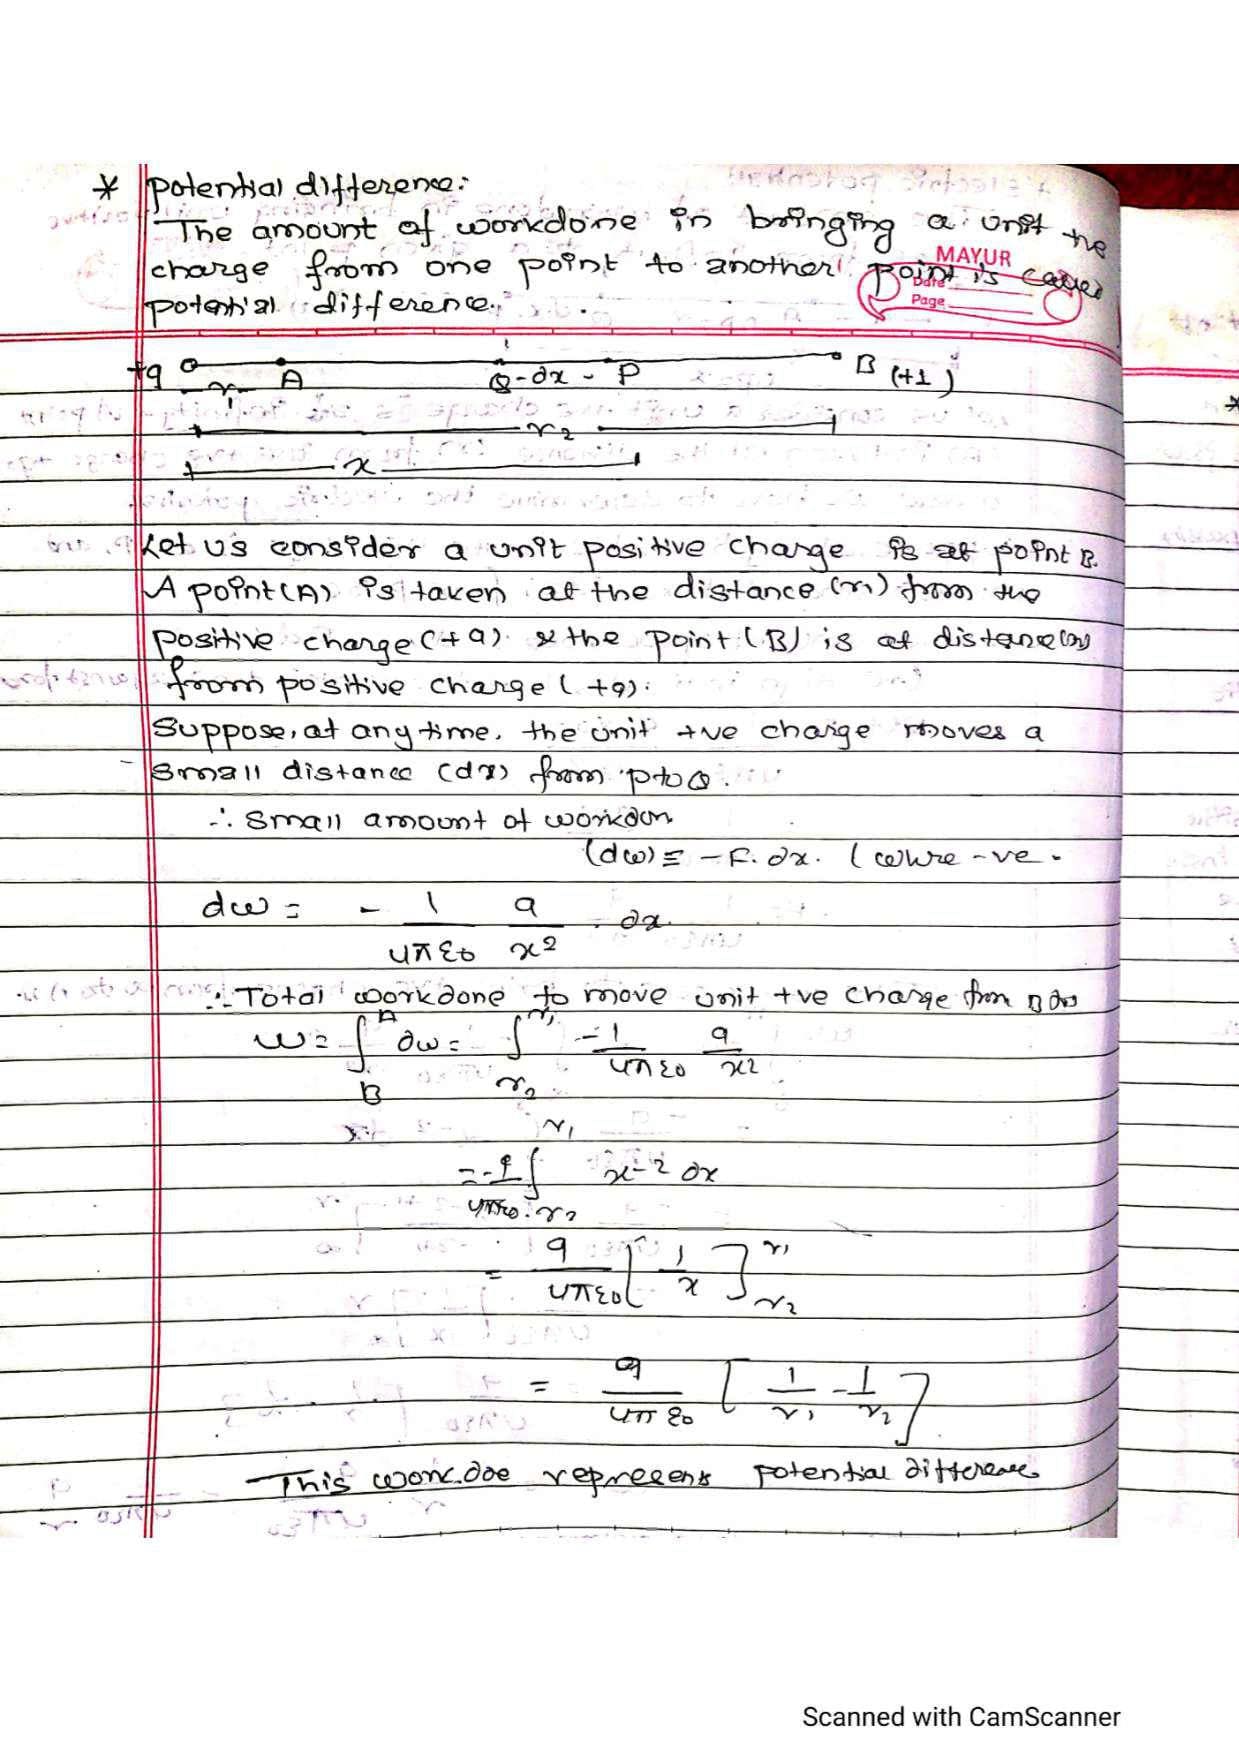 * potential difference:
The amount of workdone in bringing a unit +ve
charge from one point to another point is called
potential difference.
MAYUR
Date
Page
+q r1 A Q-dx-P B (+1)
r2
x
Let us consider a unit positive charge is at point B.
A point(A) is taken at the distance (r1) from the
positive charge(+q) & the point(B) is at distance(r2)
from positive charge(+q).
Suppose, at any time, the unit +ve charge moves a
small distance (dx) from p to Q.
∴ small amount of workdon
(dw) = -F.dx. (where -ve.
dw = - 1/4πε0 q/x2 . dx.
∴ Total workdone to move unit +ve charge from B to
w = ∫ B A dw = ∫ r2 r1 -1/4πε0 q/x2
= -q/4πε0 ∫ r2 r1 x-2 dx
= q/4πε0 [1/x] r1 r2
= q/4πε0 [1/r1 - 1/r2]
This work.doe represents potential difference
Scanned with CamScanner